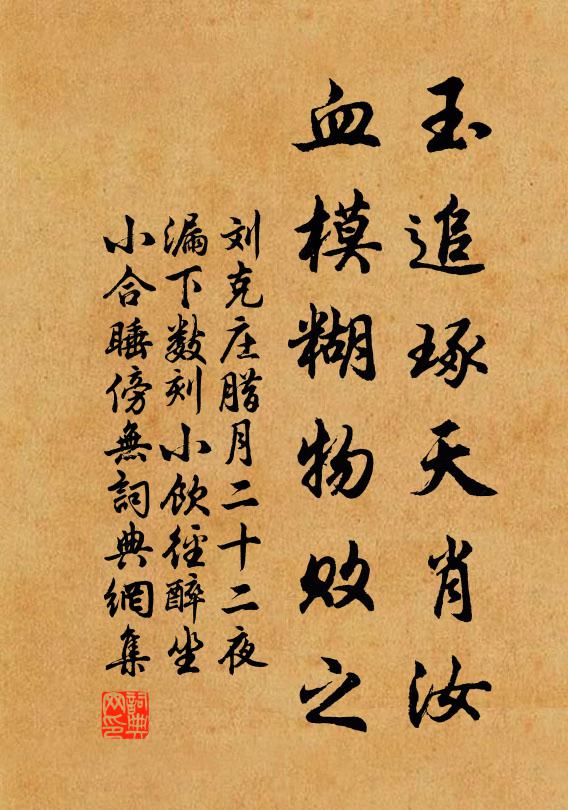 玉追琢天肖汝
血模糊物败之
刘克庄腊月二十二夜
漏下数刻小飲徑醉坐
小合睡傍無詞典網集
詞典网印